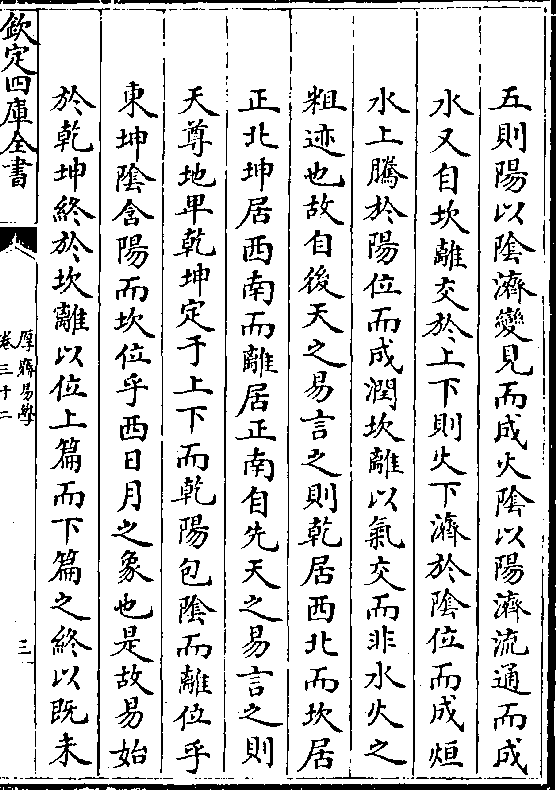 五則陽以陰濟變見而成火陰以陽濟流通而成
水又自坎離交於上下則火下濟於陰位而成烜
水上騰於陽位而成潤坎離以氣交而非水火之
粗迹也故自後天之易言之則乾居西北而坎居
正北坤居西南而離居正南自先天之易言之則
天尊地卑乾坤定于上下而乾陽包陰而離位乎
東坤陰含陽而坎位乎西日月之象也是故易始
於乾坤終於坎離以位上篇而下篇之終以既未
欽定四庫全書
厚齋易學
卷三十二
三